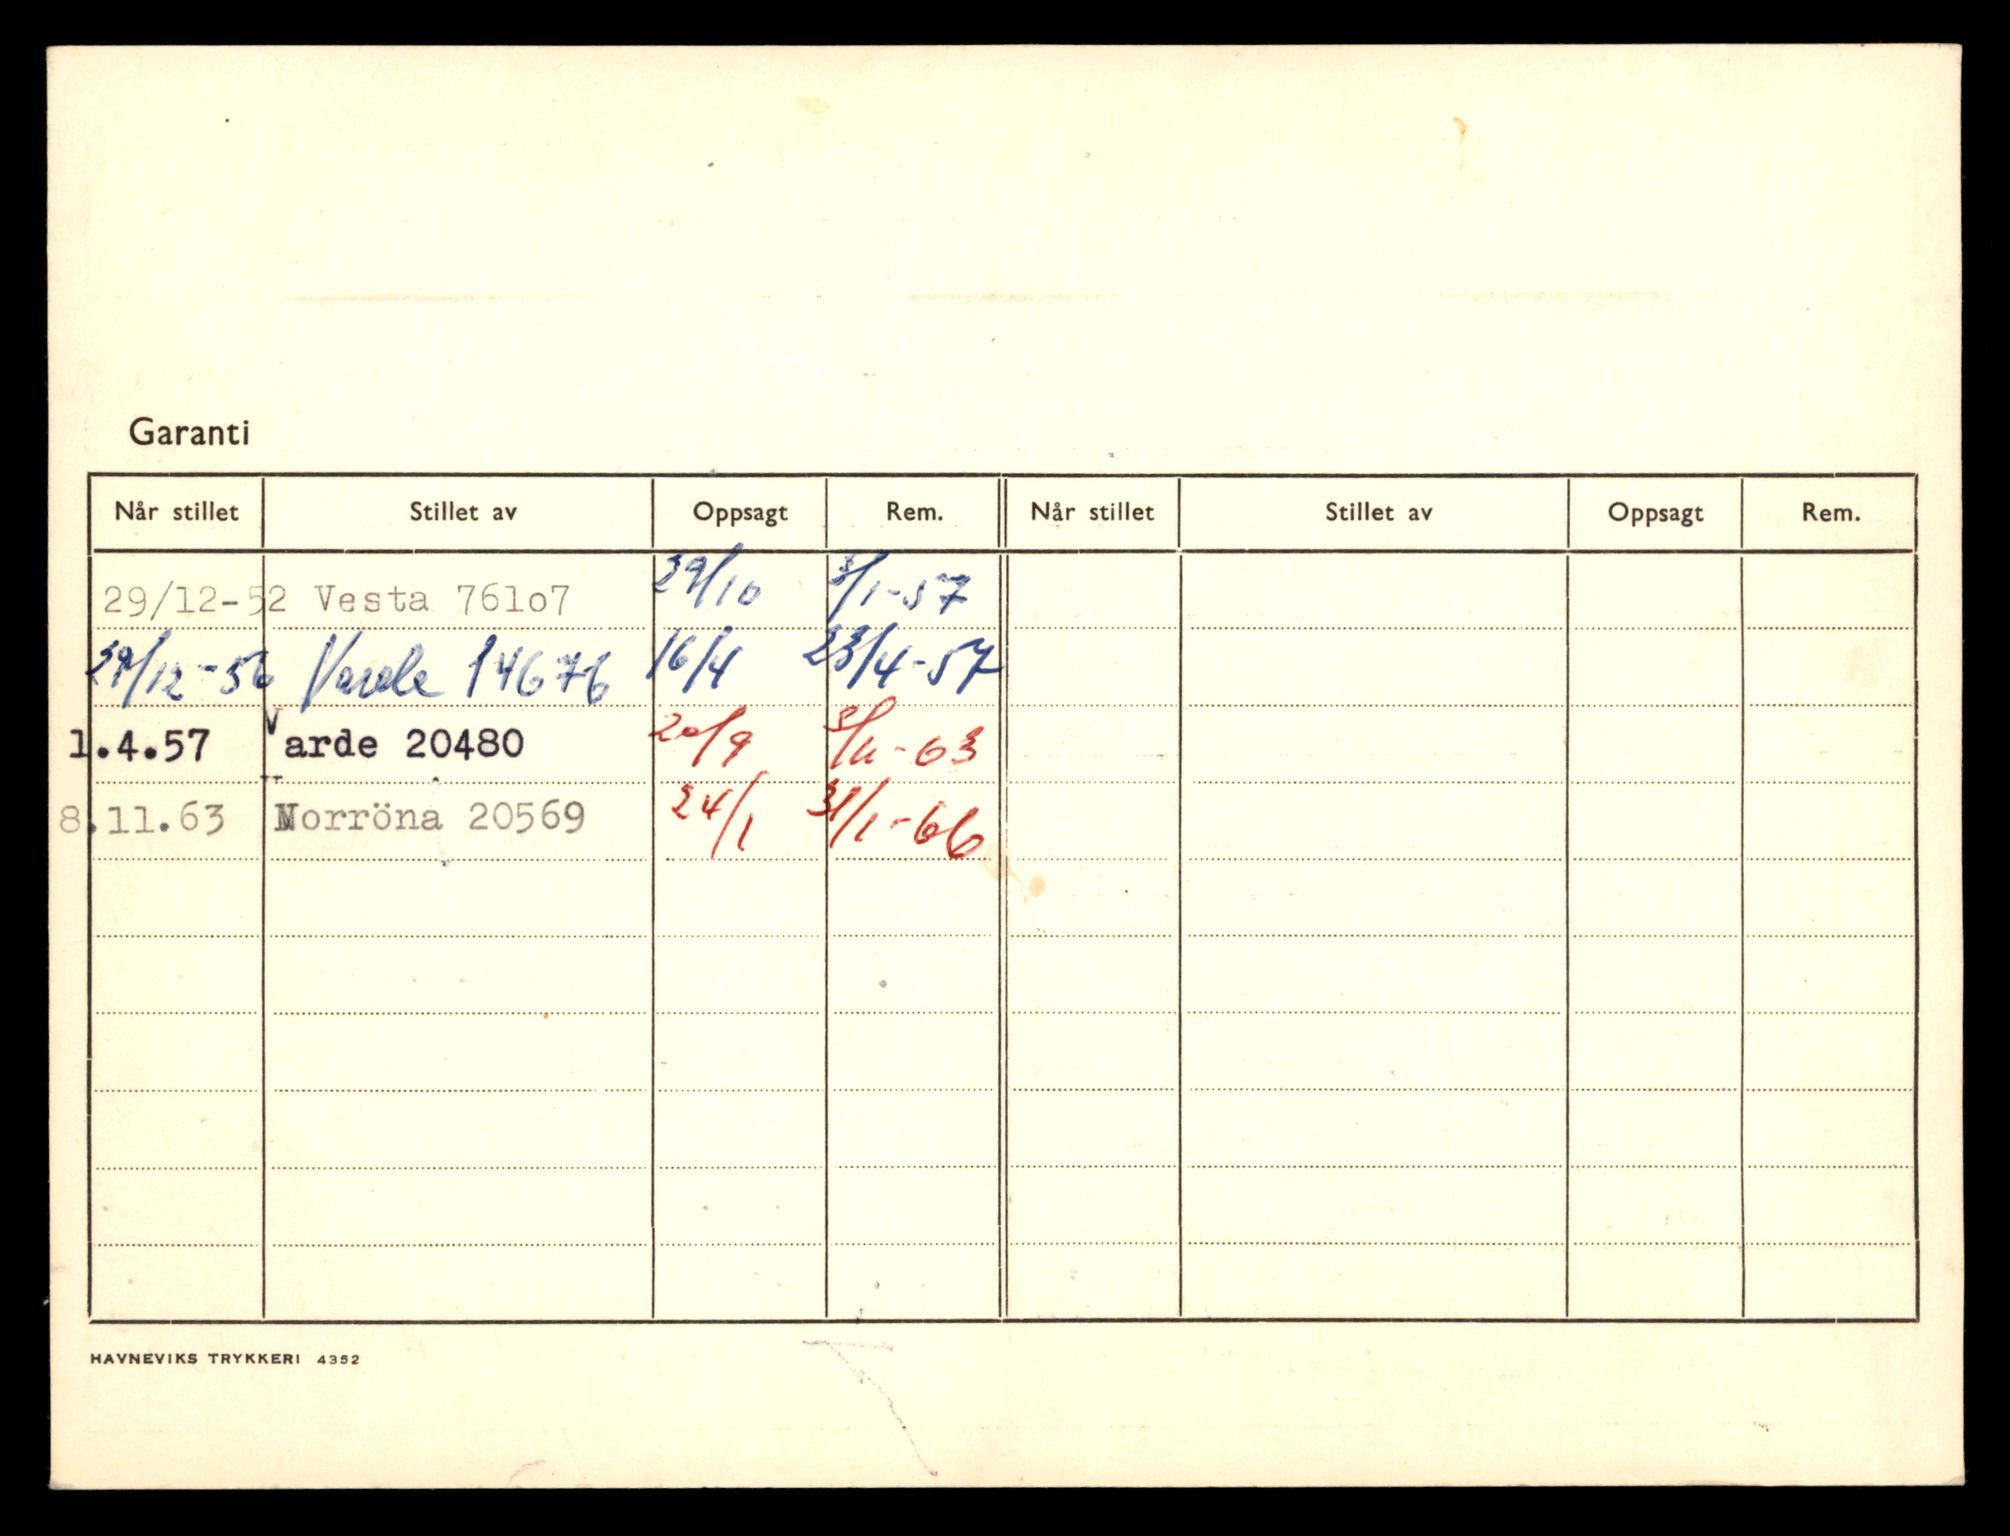 Garanti
Når stillet Stillet av Oppsagt Rem. Når stillet Stillet av Oppsagt Rem.
29/12-52 Vesta 76lo7 29/10 3/1-57
29/12-56 Varde 14676 16/4 23/4-57
1.4.57 Varde 20480 20/9 8/11-63
8.11.63 Norröna 20569 24/1 31/1-66
HAVNEVIKS TRYKKERI 4352